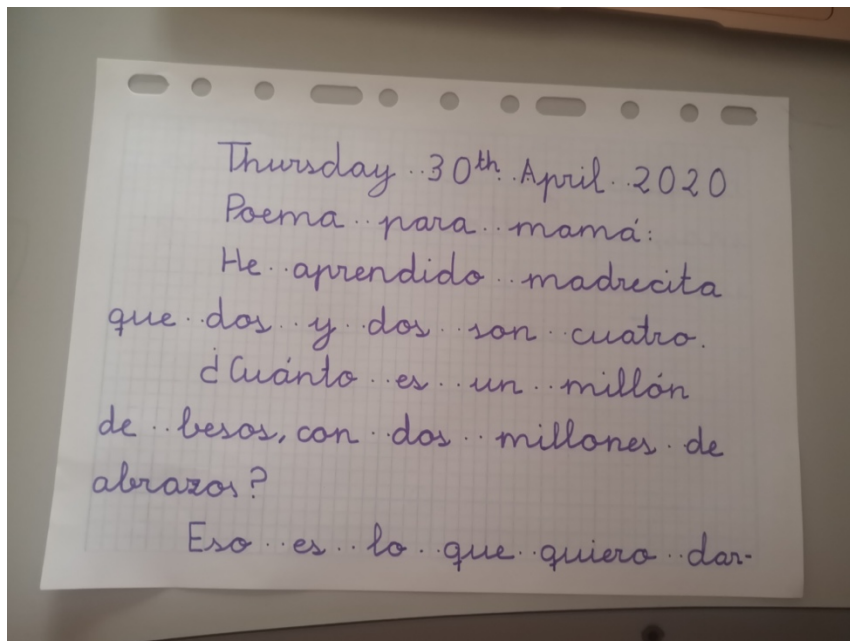 Thursday 30th April 2020
Poema para mamá:
He aprendido madrecita
que dos y dos son cuatro.
¿Cuánto es un millón
de besos, con dos millones de
abrazos?
Eso es lo que quiero dar-